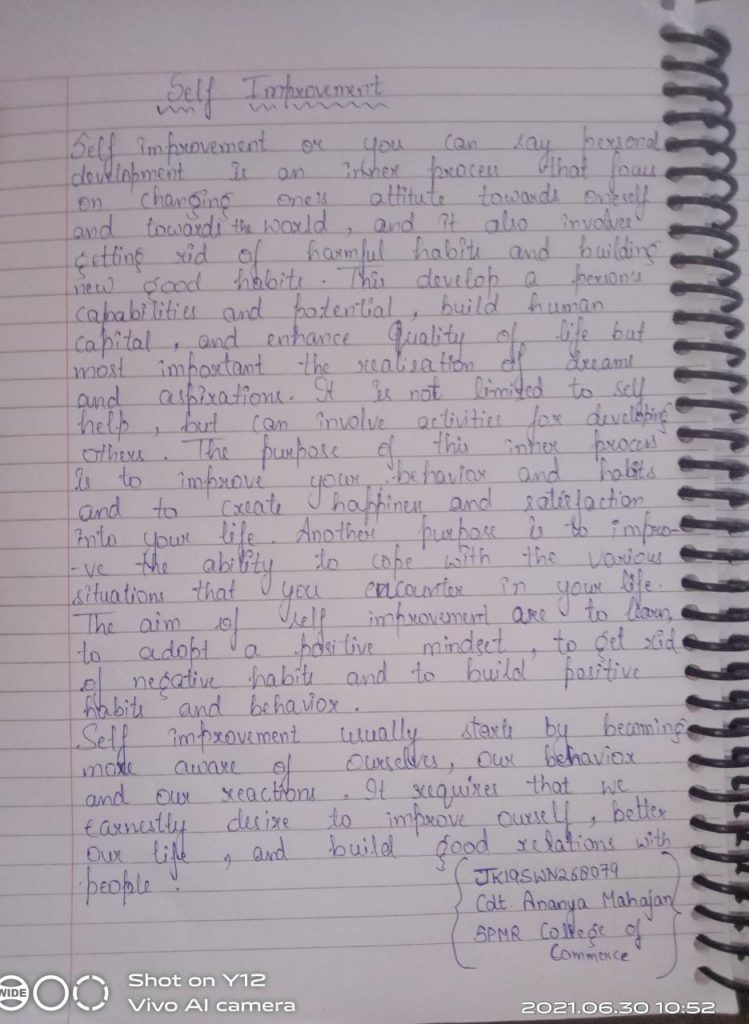 Self Improvement
Self improvement or you can say personal
development is an inner process that focus
on changing one's attitute towards oneself
and towards the world, and it also involves
getting rid of harmful habits and building
new good habits. This develop a person's
capabilities and potential, build human
capital, and enhance quality of life but
most important the realisation of dreams
and aspirations. It is not limited to self
help, but can involve activities for developing
others. The purpose of this inner process
is to improve your behavior and habits
and to create happiness and satisfaction
into your life. Another purpose is to impro-
-ve the ability to cope with the various
situations that you encounter in your life.
The aim of self improvement are to learn,
to adopt a positive mindset, to get rid
of negative habits and to build positive
habits and behavior.
Self improvement usually starts by becoming
more aware of ourselves, our behavior
and our reactions. It requires that we
earnestly desire to improve ourself, better
our life, and build good relations with
people.
JK19SWN268079
Cdt. Ananya Mahajan
SPMR College of
Commerce
WIDE
Shot on Y12
Vivo AI camera
2021.06.30 10:52